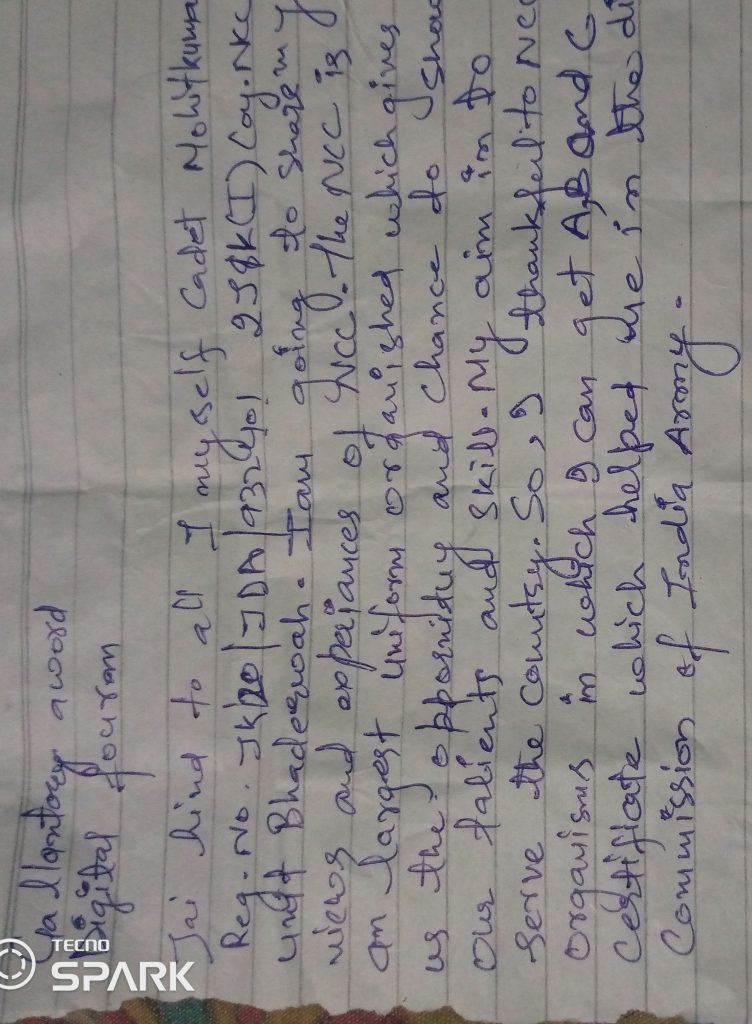 Gallantory award
Digital fouram
Jai hind to all I myself Cadet Mohitkuma
Reg. No. JK/20/JDA/932401 2J&K(I)Coy.NCC
unit Bhaderwah. I am going to share my
views and experiances of NCC. The NCC is
an largest uniform organished which gives
us the opporniduy and chance to show
our talients and skills. My aim in to
serve the country. So, I thankful to NCC
organisms in which I can get A,B and C
certificate which helped me in the di
Commission of India Army.
TECNO
SPARK